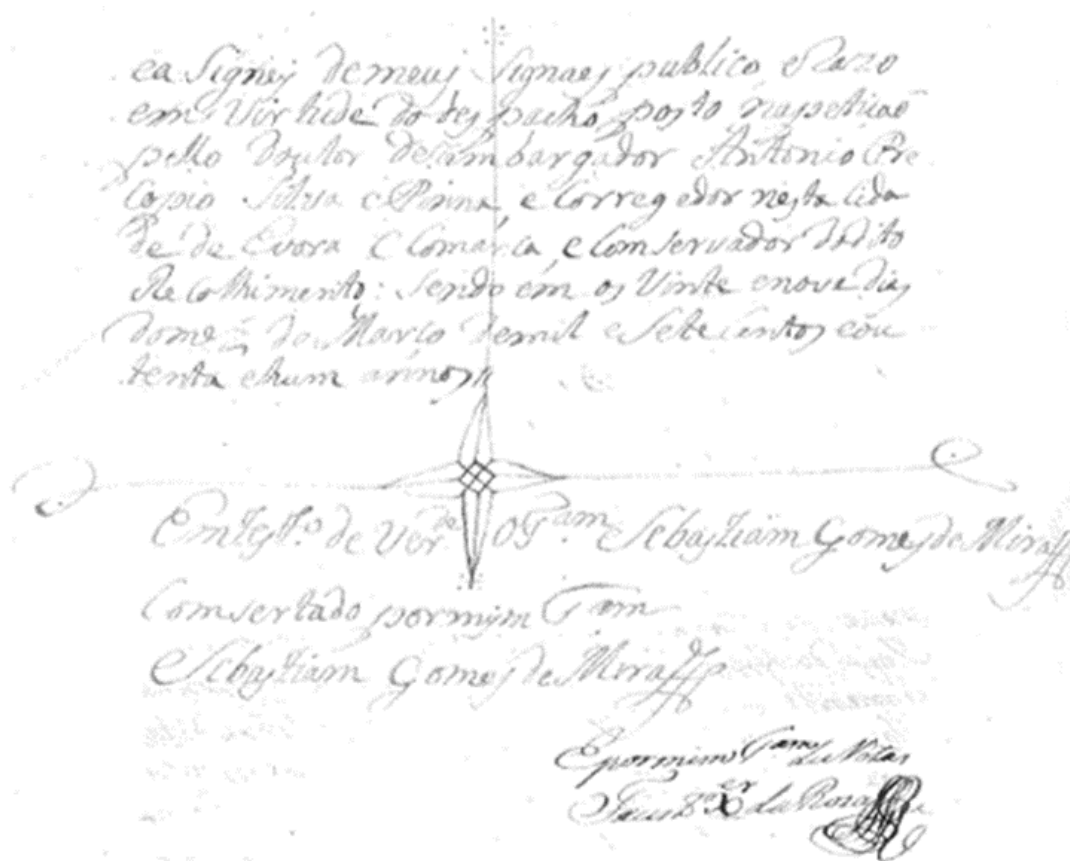 ea Signej de meuj Signaej publico, e Razo
em Virtude do des pacho, posto na petição
pello Doutor Desambargador Antonio Pre
Copio Silva e Pinna, e Corregedor nesta Cida
de de Evora e Comarca, e Comservador do dito
Recolhimento: Sendo em os Vinte e nove dias
do mez de Março de mil e Sete Centos e ou
tenta e hum annos//
Em test.º de Ver.de O Tam Sebastiam Gomes de Mira
Comsertado por mym Tam
Sebastiam Gomes de Mira
E por mim Tam de Notas